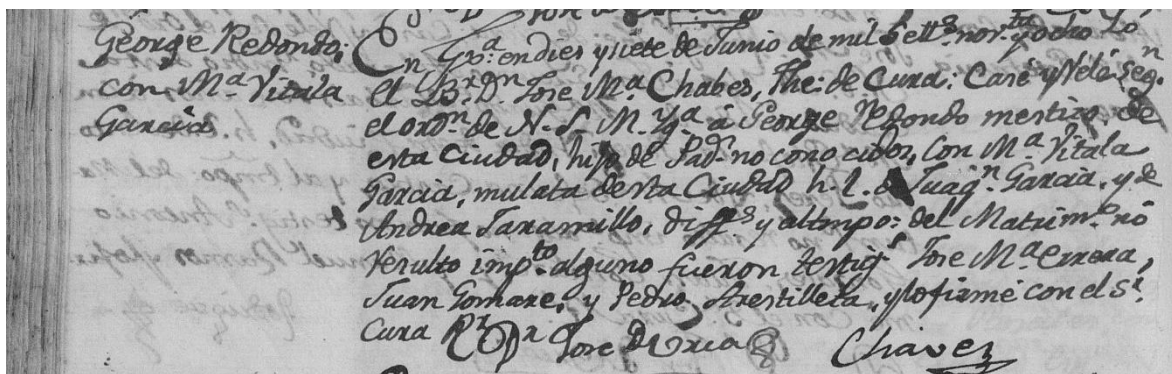 George Redondo;
con M.a Vitala
Garcia
En Gx.a en dies y siete de Junio de mil sett.s nov.ta y ocho Yo
el B.r D.n Jose M.a Chabes, The: de Cura: Casé y Velé seg.n
el ord.n de N. S. M. Yg.a à George Redondo mestizo, de
esta Ciudad, hijo de Pad.s no conocidos, con M.a Vitala
Garcia, mulata desta Ciudad h. l. de Juaq.n Garcia, y de
Andrea Jaramillo, diff.s y al tmpo: del Matrim.o nó
resulto imp.to alguno fueron testig.s Jose M.a Errera,
Juan Gomare, y Pedro Arestilleta, y lo firmé con el S.r
Cura R.or D.r Jose D Uria Chavez